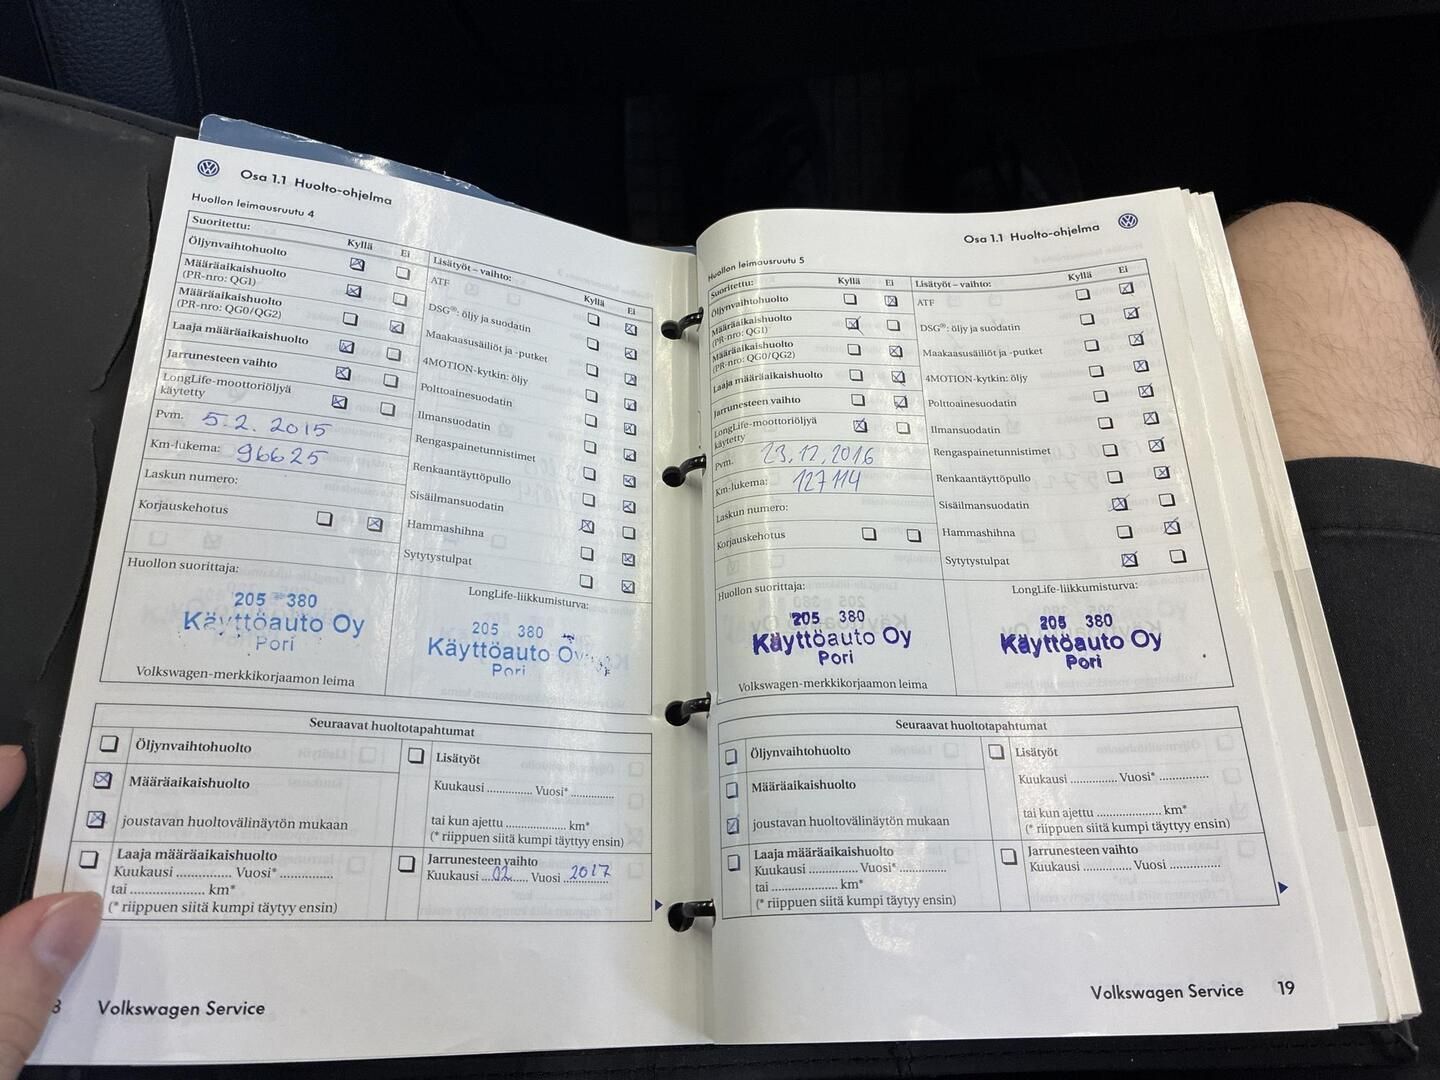 Osa 1.1 Huolto-ohjelma
Huollon leimausruutu 4
Suoritettu:
Kyllä
Ei
Öljynvaihtohuolto
Määräaikaishuolto
(PR-nro: QG1)
Määräaikaishuolto
(PR-nro: QG0/QG2)
Laaja määräaikaishuolto
Jarrunesteen vaihto
LongLife-moottoriöljyä
käytetty
Pvm. 5.2.2015
Km-lukema: 96625
Laskun numero:
Korjauskehotus
Lisätyöt – vaihto:
Kyllä
Ei
ATF
DSG®: öljy ja suodatin
Maakaasusäiliöt ja -putket
4MOTION-kytkin: öljy
Polttoainesuodatin
Ilmansuodatin
Rengaspainetunnistimet
Renkaantäyttöpullo
Sisäilmansuodatin
Hammashihna
Sytytystulpat
Huollon suorittaja:
205 380
Käyttöauto Oy
Pori
Volkswagen-merkkikorjaamon leima
LongLife-liikkumisturva:
205 380
Käyttöauto Oy
Pori
Seuraavat huoltotapahtumat
Öljynvaihtohuolto
Määräaikaishuolto
joustavan huoltovälinäytön mukaan
Laaja määräaikaishuolto
Kuukausi .............. Vuosi* ..............
tai .................... km*
(* riippuen siitä kumpi täytyy ensin)
Lisätyöt
Kuukausi .............. Vuosi* ..............
tai kun ajettu .................... km*
(* riippuen siitä kumpi täyttyy ensin)
Jarrunesteen vaihto
Kuukausi ...02... Vuosi ..2017..
Volkswagen Service
Osa 1.1 Huolto-ohjelma
Huollon leimausruutu 5
Suoritettu:
Kyllä
Ei
Öljynvaihtohuolto
Määräaikaishuolto
(PR-nro: QG1)
Määräaikaishuolto
(PR-nro: QG0/QG2)
Laaja määräaikaishuolto
Jarrunesteen vaihto
LongLife-moottoriöljyä
käytetty
Pvm. 23.12.2016
Km-lukema: 127114
Laskun numero:
Korjauskehotus
Lisätyöt – vaihto:
Kyllä
Ei
ATF
DSG®: öljy ja suodatin
Maakaasusäiliöt ja -putket
4MOTION-kytkin: öljy
Polttoainesuodatin
Ilmansuodatin
Rengaspainetunnistimet
Renkaantäyttöpullo
Sisäilmansuodatin
Hammashihna
Sytytystulpat
Huollon suorittaja:
205 380
Käyttöauto Oy
Pori
Volkswagen-merkkikorjaamon leima
LongLife-liikkumisturva:
205 380
Käyttöauto Oy
Pori
Seuraavat huoltotapahtumat
Öljynvaihtohuolto
Määräaikaishuolto
joustavan huoltovälinäytön mukaan
Laaja määräaikaishuolto
Kuukausi .............. Vuosi* ..............
tai .................... km*
(* riippuen siitä kumpi täytyy ensin)
Lisätyöt
Kuukausi .............. Vuosi* ..............
tai kun ajettu .................... km*
(* riippuen siitä kumpi täyttyy ensin)
Jarrunesteen vaihto
Kuukausi .............. Vuosi ..............
Volkswagen Service 19